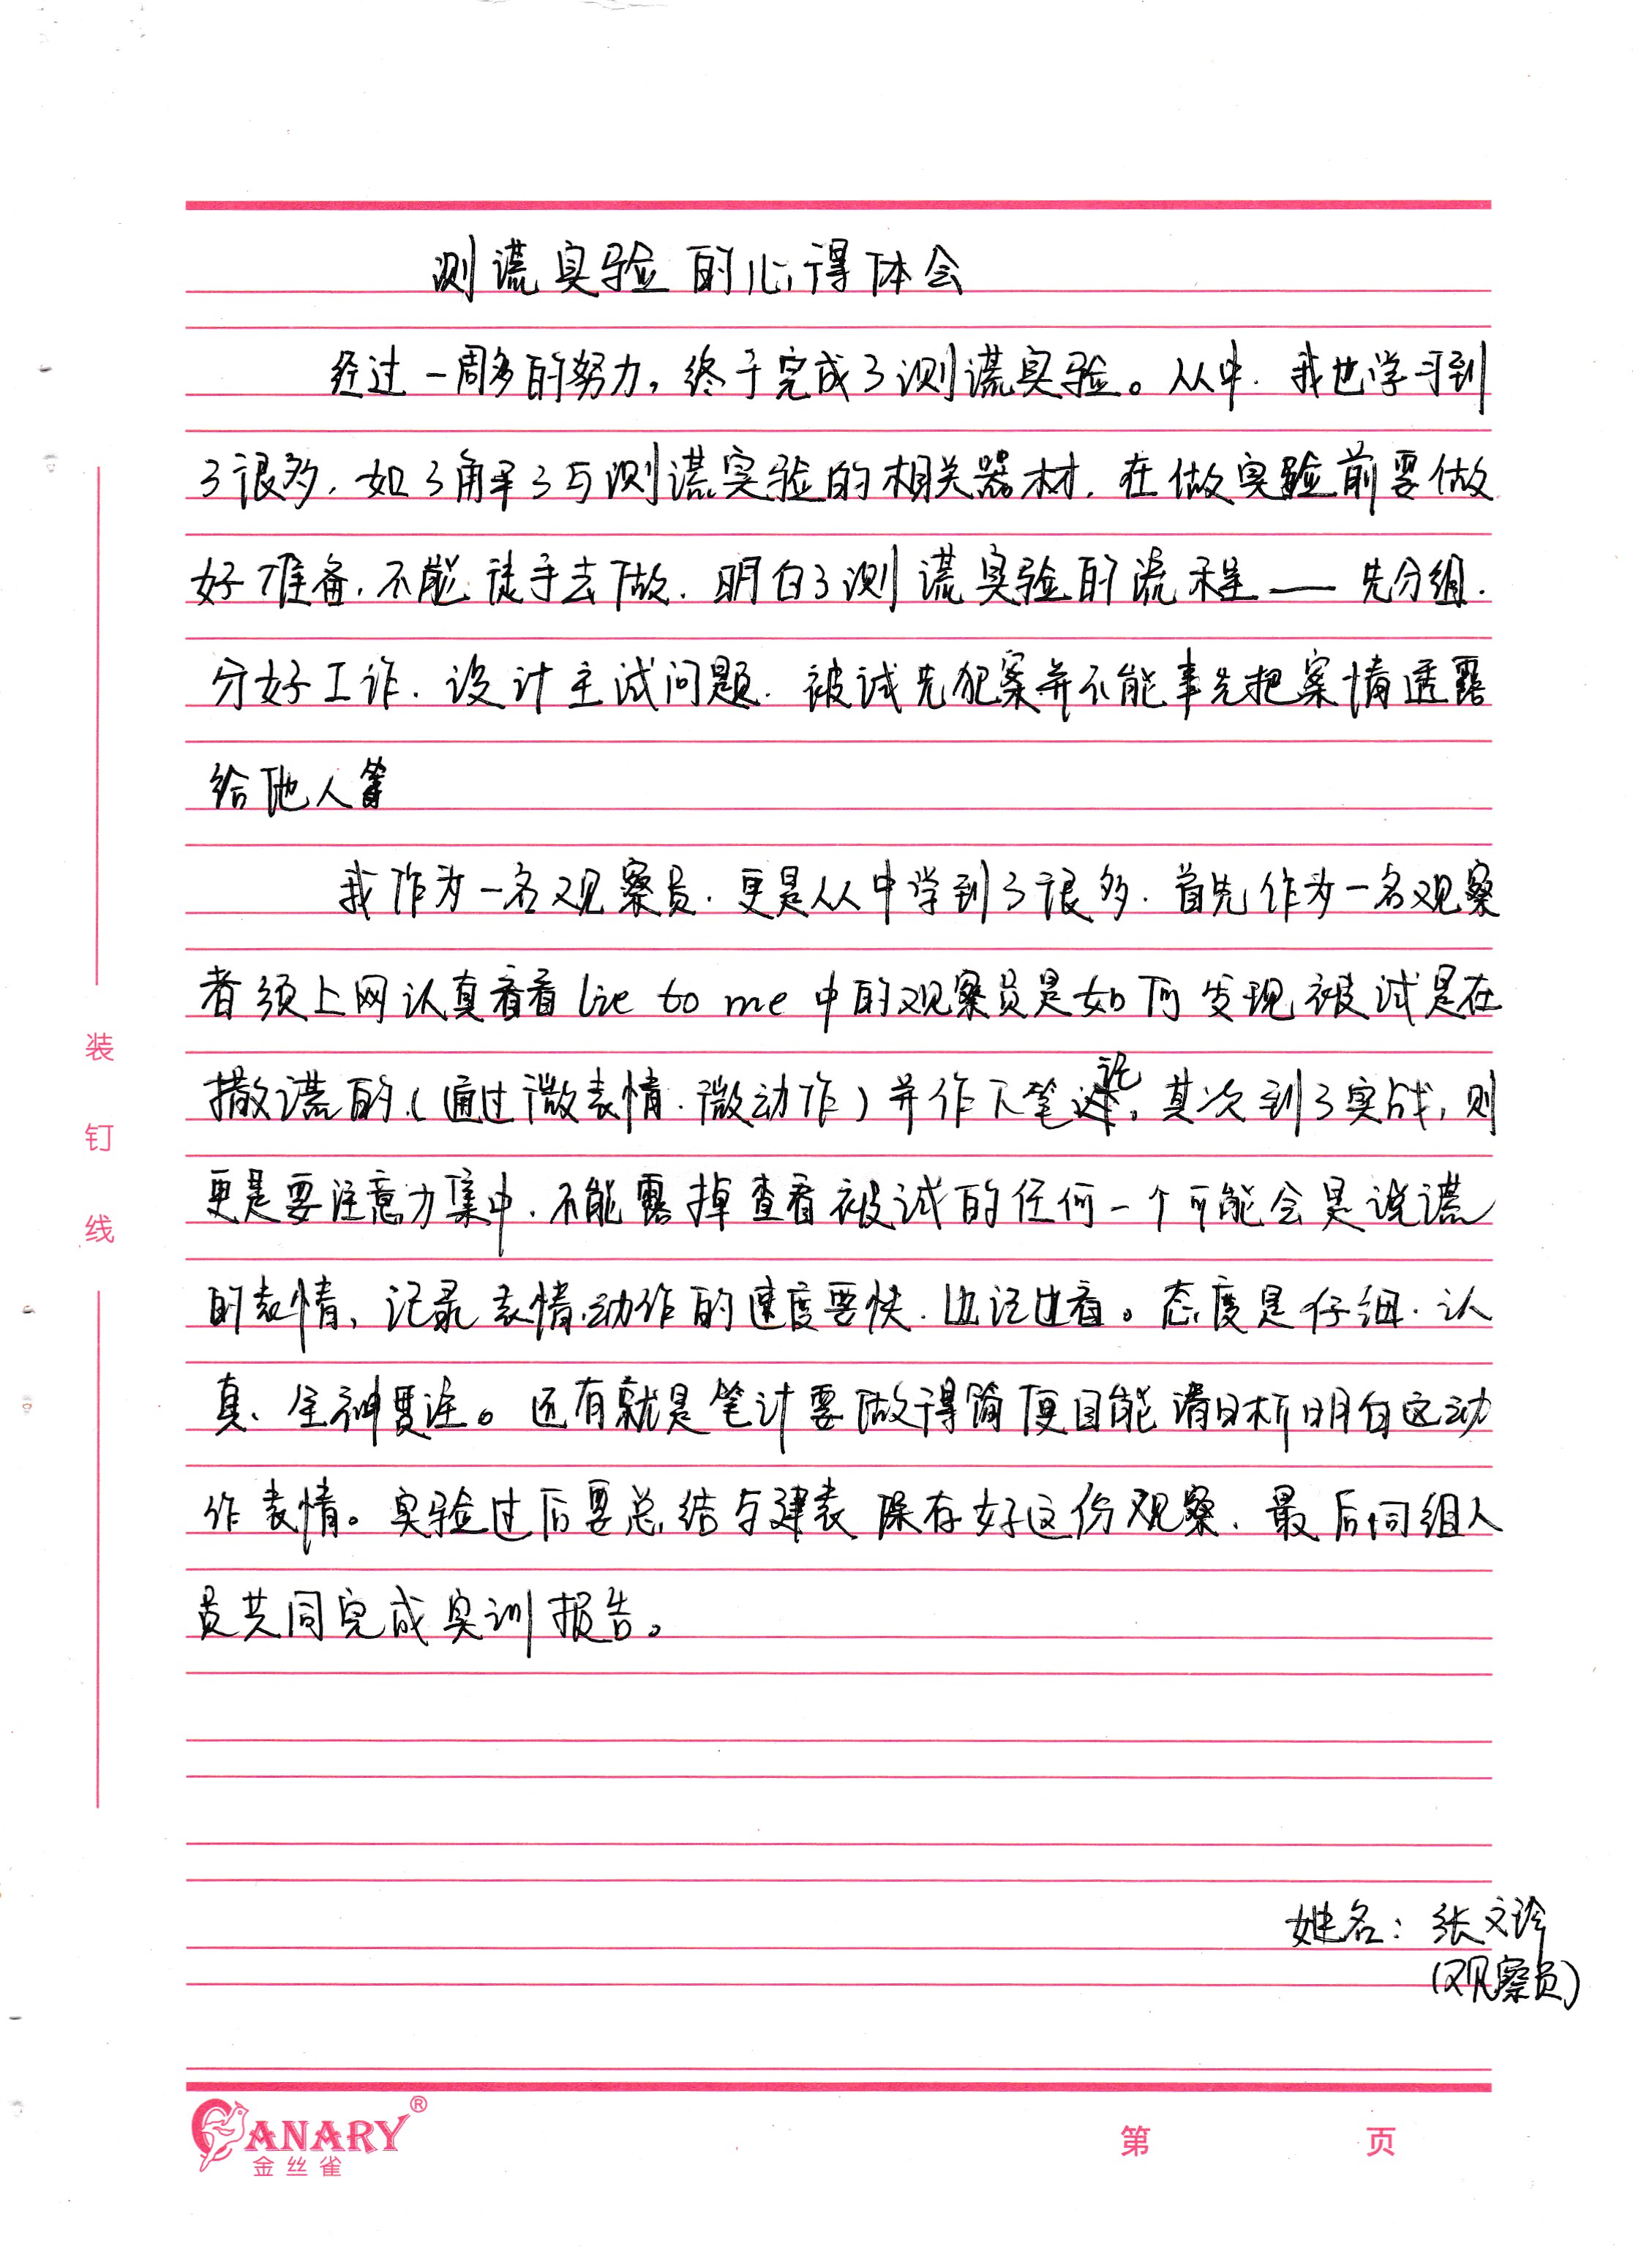 测谎实验的心得体会
经过一周多的努力，终于完成了测谎实验。从中，我也学习到
了很多，如了解了与测谎实验的相关器材，在做实验前要做
好准备，不能徒手去做，明白了测谎实验的流程——先分组，
分好工作，设计主试问题，被试先犯案并不能事先把案情透露
给他人等
我作为一名观察员，更是从中学到了很多，首先作为一名观察
者须上网认真看看 lie to me 中的观察员是如何发现被试是在
撒谎的（通过微表情、微动作）并作下笔记，其次到了实战，则
更是要注意力集中，不能露掉查看被试的任何一个可能会是说谎
的表情，记录表情动作的速度要快，边记边看。态度是仔细、认
真、全神贯注。还有就是笔计要做得简便且能清晰明白这动
作表情。实验过后要总结与建表保存好这份观察，最后同组人
员共同完成实训报告。
姓名：张文诊
（观察员）
装
订
线
CANARY®
金丝雀
第 页